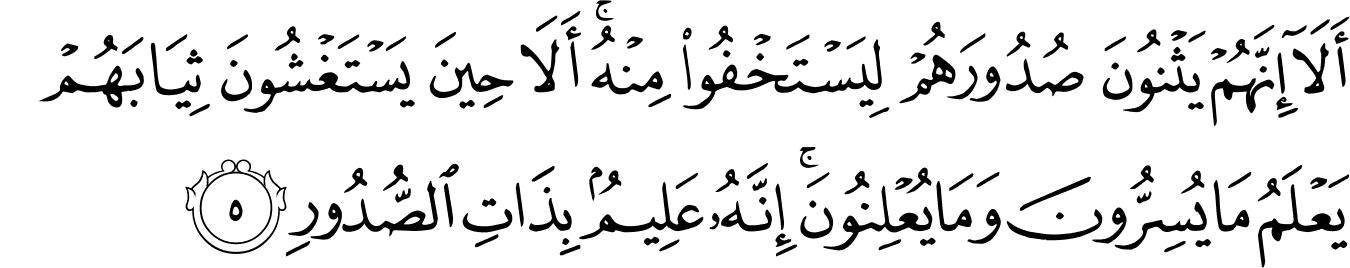 أَلَآ إِنَّهُمْ يَثْنُونَ صُدُورَهُمْ لِيَسْتَخْفُوا۟ مِنْهُ ۚ أَلَا حِينَ يَسْتَغْشُونَ ثِيَابَهُمْ
يَعْلَمُ مَا يُسِرُّونَ وَمَا يُعْلِنُونَ ۚ إِنَّهُۥ عَلِيمٌۢ بِذَاتِ ٱلصُّدُورِ ٥